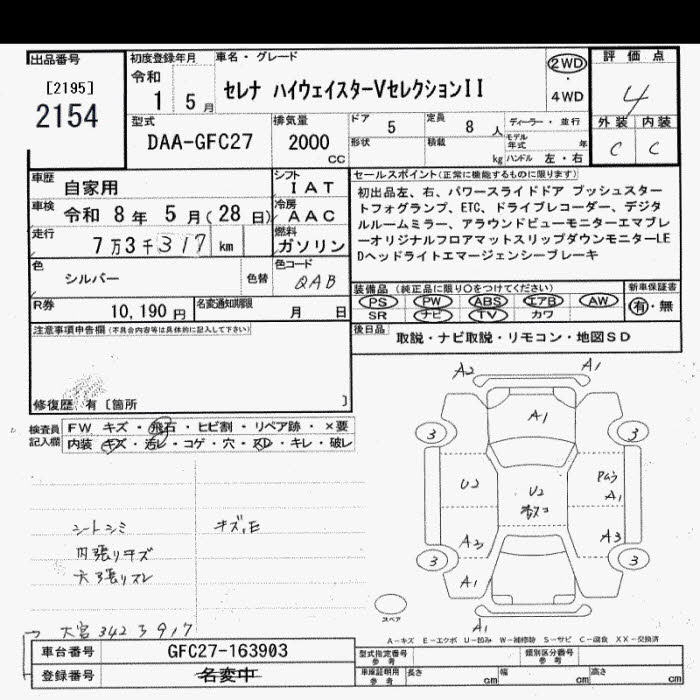 出品番号
[2195]
2154
初度登録年月
令和
1 5 月
車名・グレード
セレナ ハイウェイスターVセレクションII
2WD
・
4WD
評価点
4
外装 内装
C C
型式
DAA-GFC27
排気量
2000
CC
ドア 5
定員 8 人
形状
積載 kg
ディーラー・並行
モデル年式 年
ハンドル 左・右
車歴 自家用
車検 令和 8 年 5 月(28 日)
走行 7万3千317 km
シフト IAT
冷房 AAC
燃料 ガソリン
色 シルバー 色替
色コード QAB
R券 10,190 円
名変通知期限 月 日
セールスポイント(正常に機能するものに限ります)
初出品左、右、パワースライドドア プッシュスター
トフォグランプ、ETC、ドライブレコーダー、デジタ
ルルームミラー、アラウンドビューモニターエマブレ
ーオリジナルフロアマットスリップダウンモニターLE
Dヘッドライトエマージェンシーブレーキ
装備品(純正品に限り○をつけてください)
PS PW ABS エアB AW
SR ナビ TV カワ
新車保証書
有・無
後日品 取説・ナビ取説・リモコン・地図SD
注意事項申告欄(不具合内容等は具体的に記入して下さい)
修復歴 有〔箇所 〕
検査員記入欄
FW キズ・飛石・ヒビ割・リペア跡・×要
内装 キズ・汚レ・コゲ・穴・スレ・キレ・破レ
シートシミ
内張りキズ
天張りスレ
キズ,E
A2 A1
A1
3 3
U2
U2
A1
A3 A3
3 3
A1
A1
スペア
A-キズ E-エクボ U-凹み W-補修跡 S-サビ C-腐食 XX-交換済
車台番号 GFC27-163903
登録番号 名変中
型式指定番号 参考
類別区分番号 参考
車庫証明用 参考
長さ cm
幅 cm
高さ cm